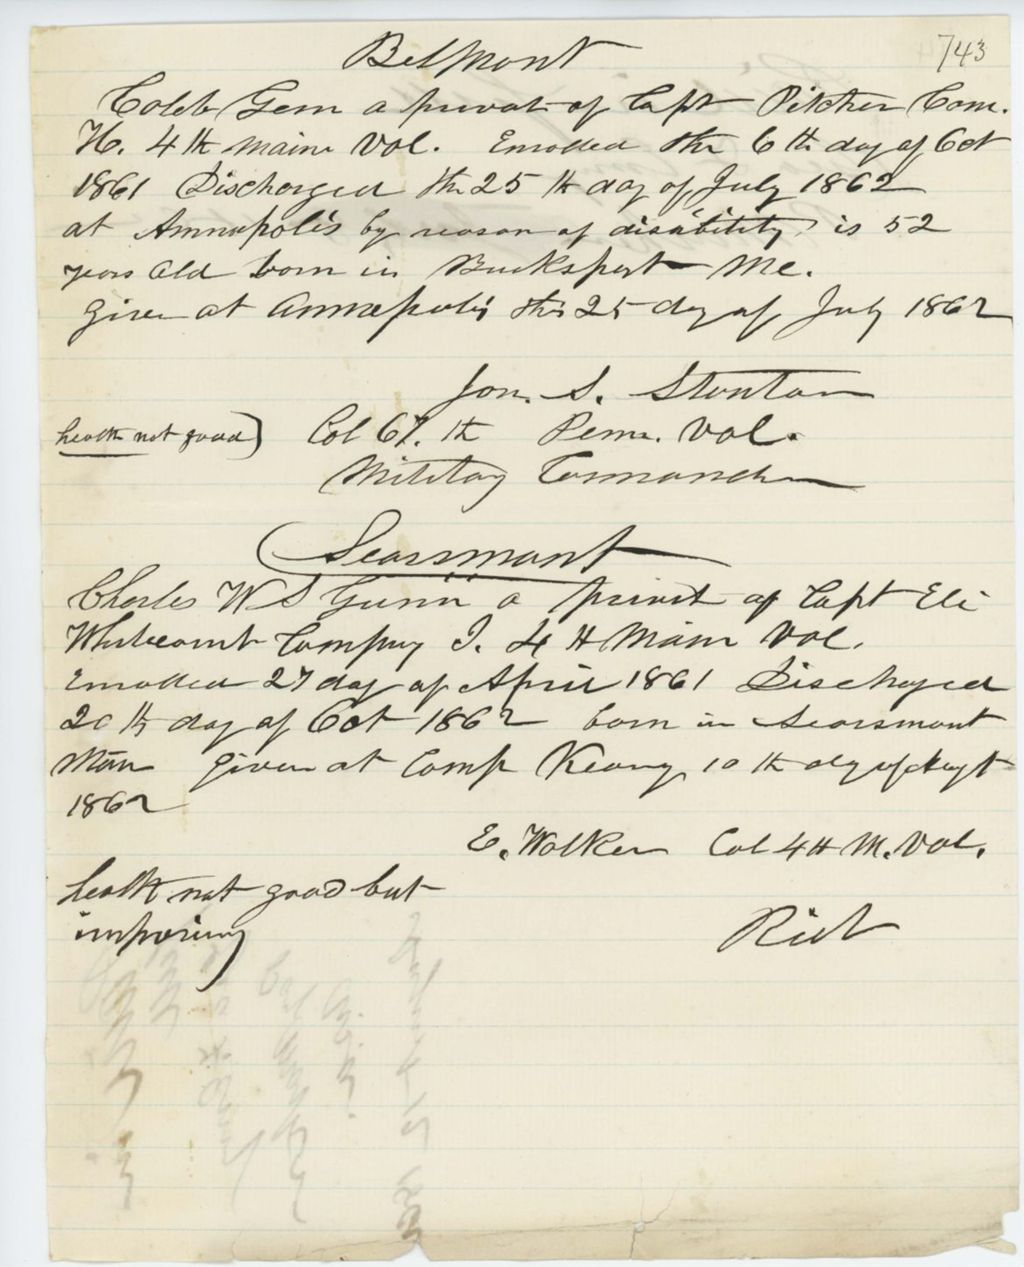 743
Belmont
Caleb Gem a private of Capt Pitcher Com.
H. 4th Maine Vol. Enrolled the 6th day of Oct
1861 Discharged the 25th day of July 1862
at Annapolis by reason of disability is 52
years old born in Bucksport Me.
Given at Annapolis this 25 day of July 1862
Jon. S. Stentan
health not good) Col 67.th Penn. Vol.
Military Commander
Searsmont
Charles W S Gunn a privat of Capt Eli
Whitcomb Company I. 4th Main Vol.
Enrolled 27 day of April 1861 Discharged
20th day of Oct 1862 born in Searsmont
Main Given at Camp Keany 10th day of Sept
1862
E. Walker Col 4th M. Vol.
health not good but
improving
Rich